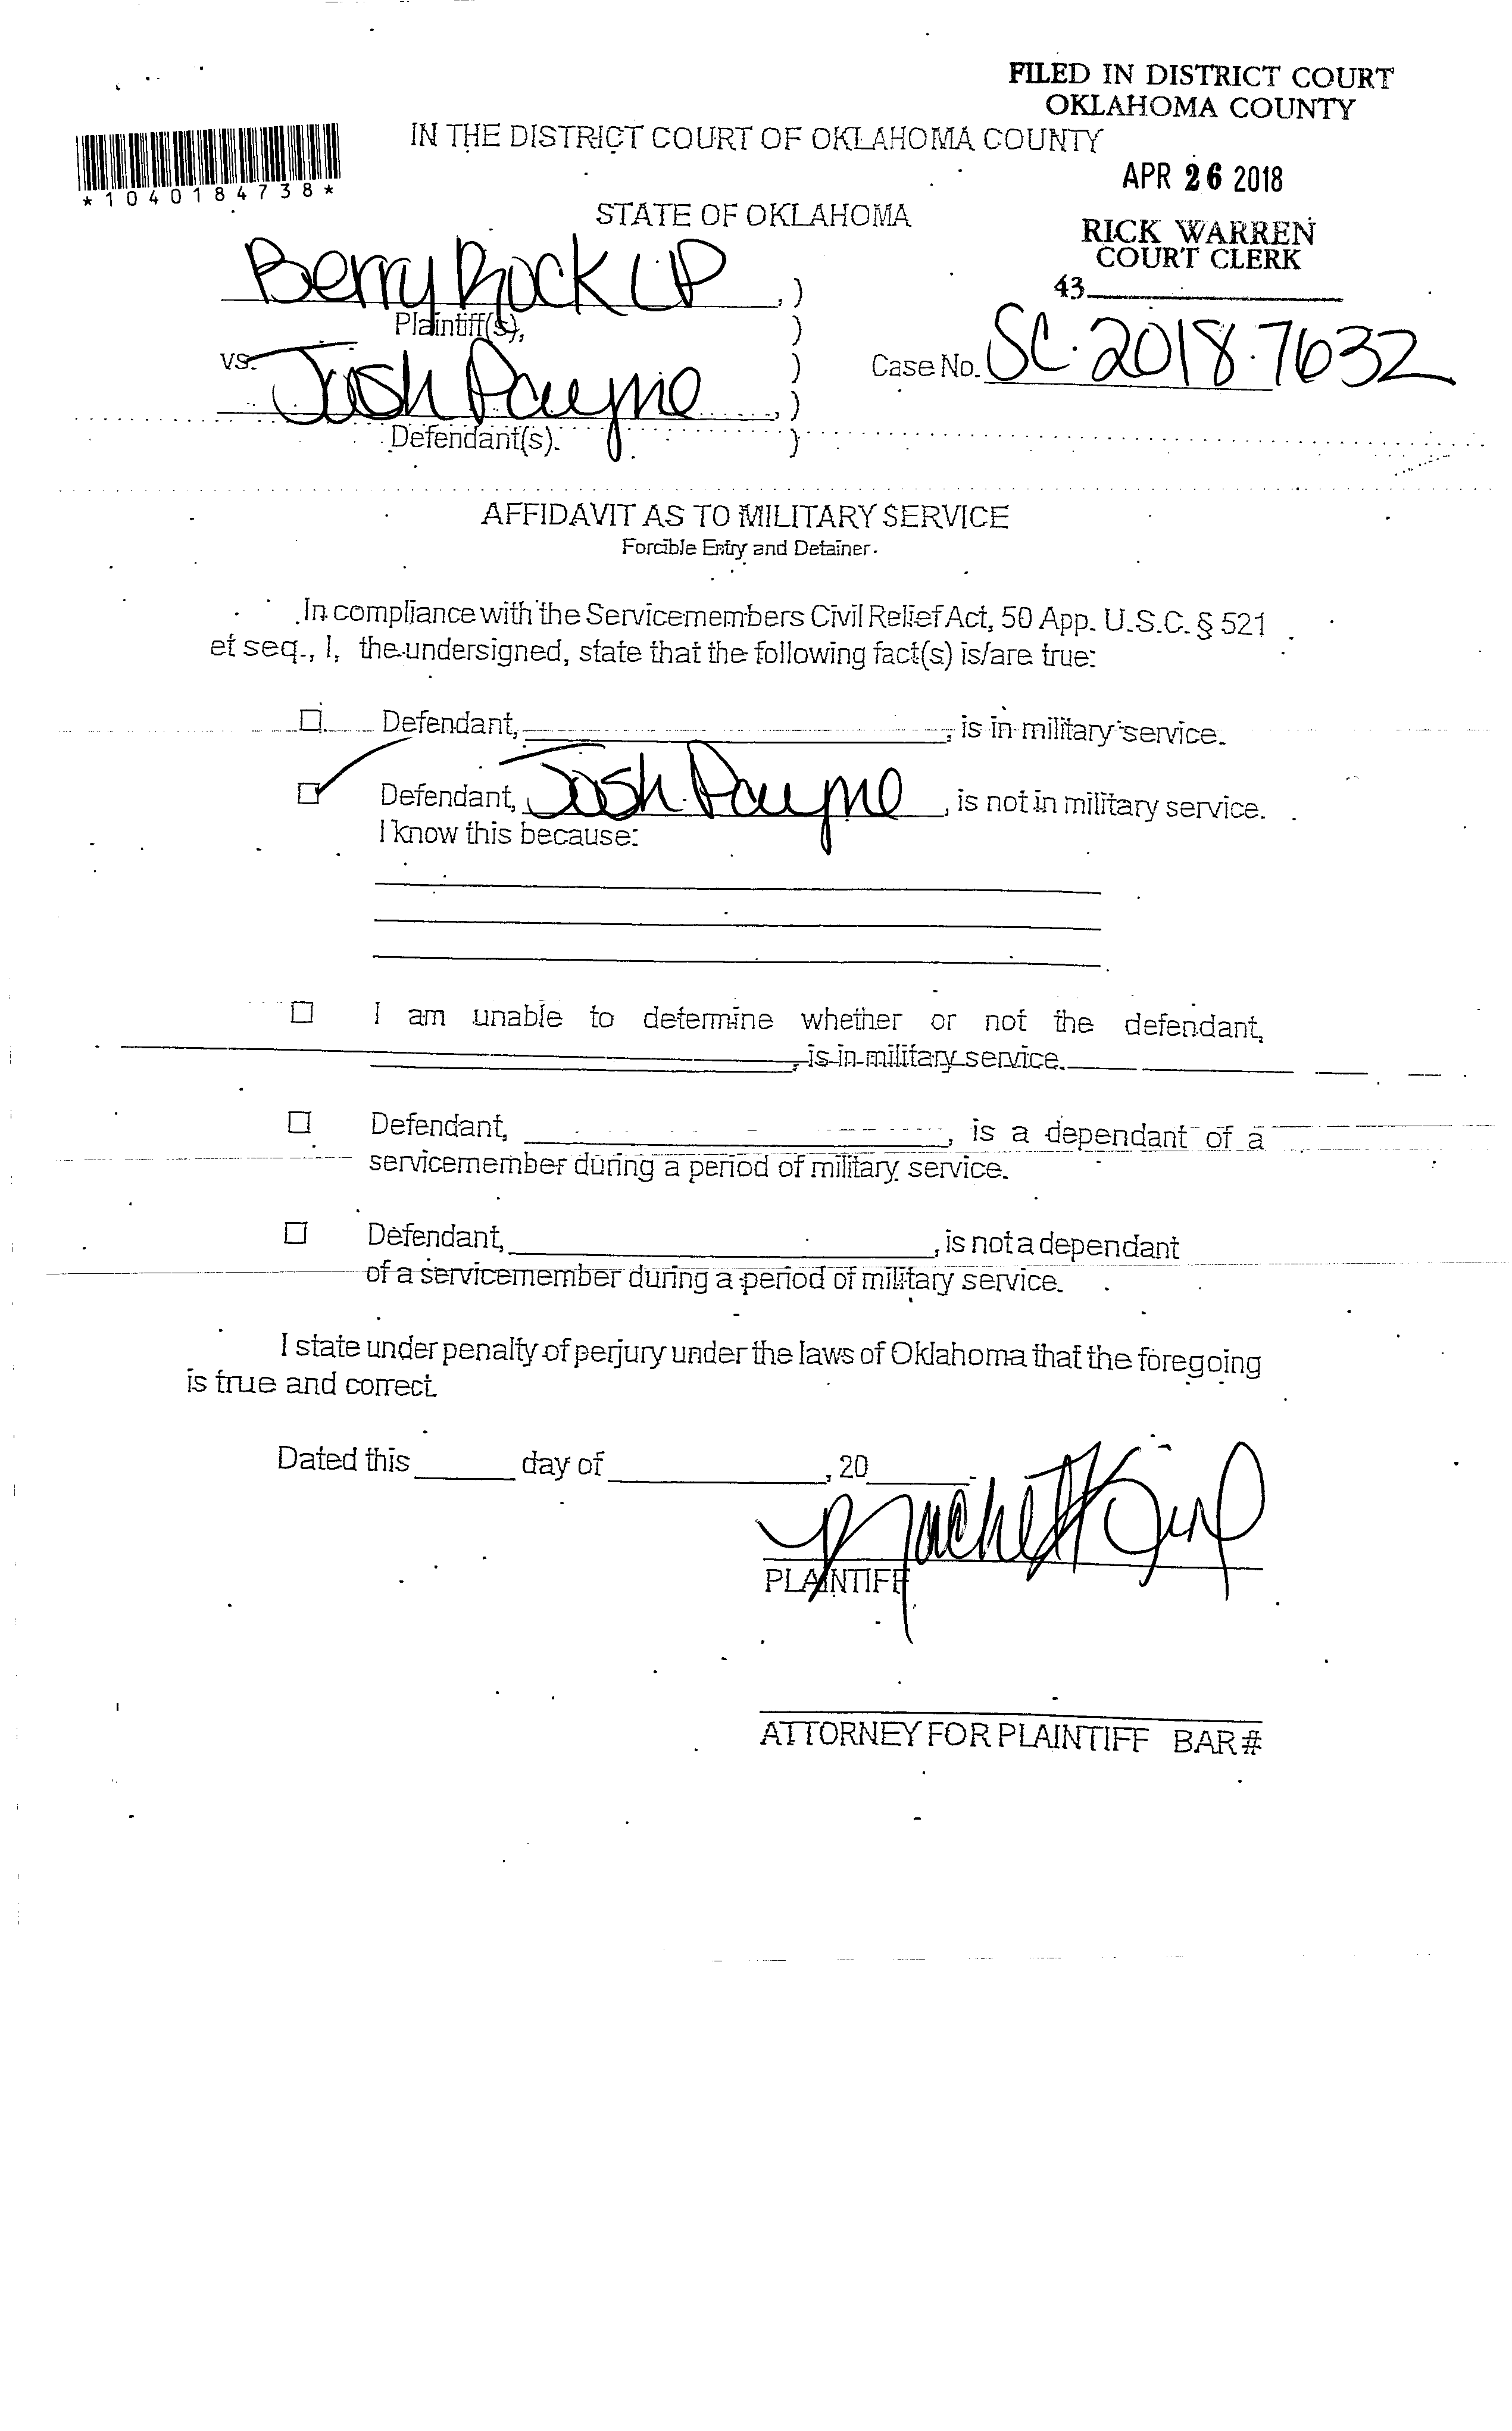 FILED IN DISTRICT COURT
OKLAHOMA COUNTY
IN THE DISTRICT COURT OF OKLAHOMA COUNTY
APR 26 2018
*1040184738*
STATE OF OKLAHOMA
RICK WARREN
COURT CLERK
43
Berry Rock LP , )
Plaintiff(s), )
vs. )
Case No. SC-2018-7632
Josh Payne , )
Defendant(s). )
AFFIDAVIT AS TO MILITARY SERVICE
Forcible Entry and Detainer
In compliance with the Servicemembers Civil Relief Act, 50 App. U.S.C. § 521
et seq., I, the undersigned, state that the following fact(s) is/are true:
☐ Defendant, , is in military service.
☑ Defendant, Josh Payne , is not in military service.
I know this because:
☐ I am unable to determine whether or not the defendant,
, is in military service.
☐ Defendant, , is a dependant of a
servicemember during a period of military service.
☐ Defendant, , is not a dependant
of a servicemember during a period of military service.
I state under penalty of perjury under the laws of Oklahoma that the foregoing
is true and correct.
Dated this day of , 20
PLAINTIFF
ATTORNEY FOR PLAINTIFF BAR #